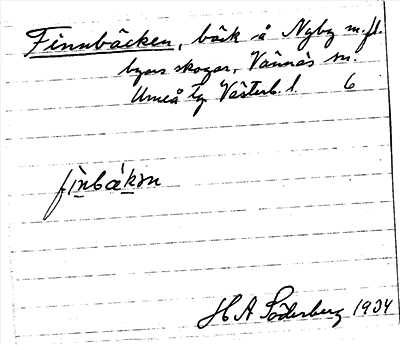 Finnbäcken, bäck å Nyby m.fl.
byars skogar, Vännäs sn.
Umeå tg Västerb. l. 6
fìnbákən
H A Söderberg 1934